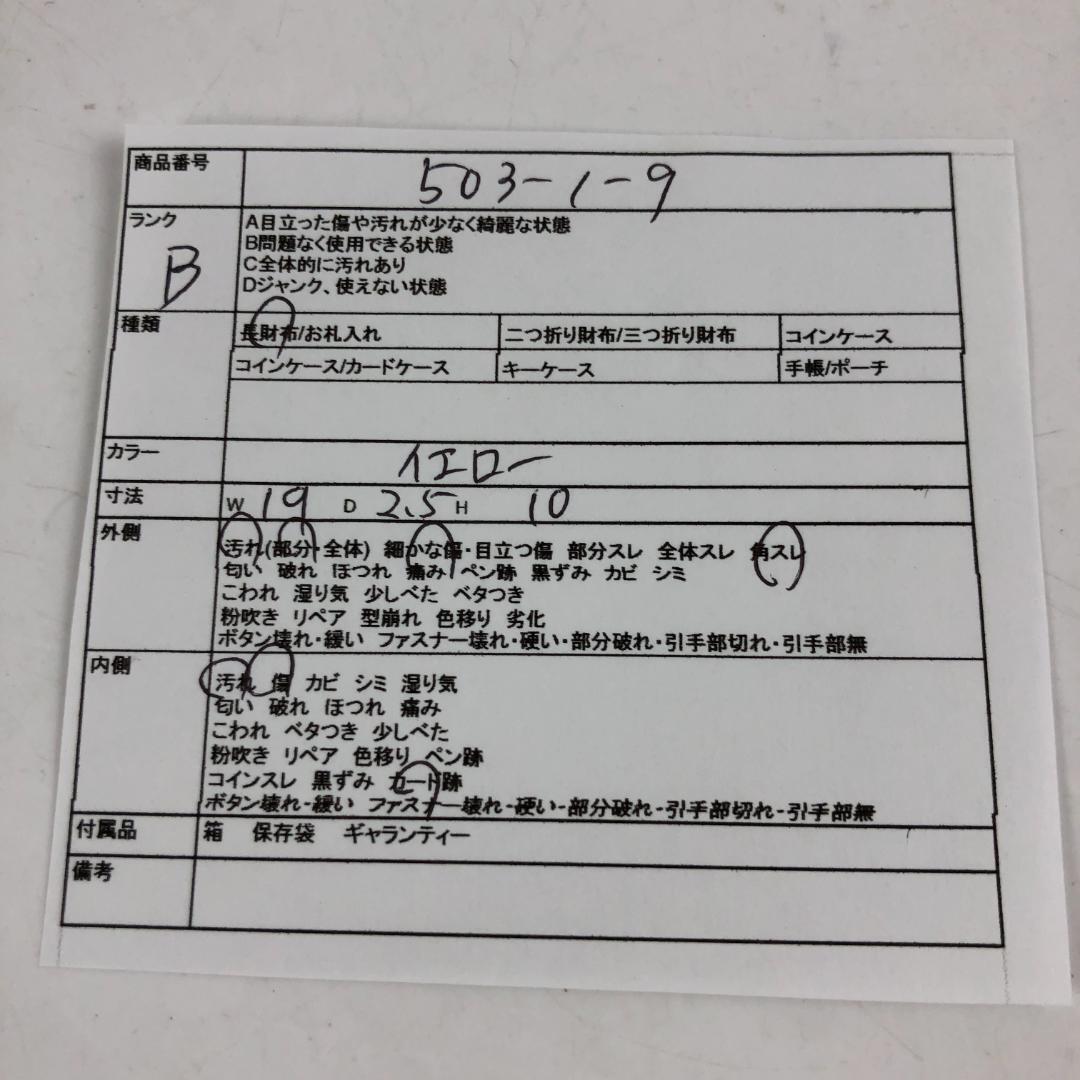 商品番号 503-1-9
ランク B
A目立った傷や汚れが少なく綺麗な状態
B問題なく使用できる状態
C全体的に汚れあり
Dジャンク、使えない状態
種類 長財布/お札入れ 二つ折り財布/三つ折り財布 コインケース
コインケース/カードケース キーケース 手帳/ポーチ
カラー イエロー
寸法 W 19 D 2.5 H 10
外側 汚れ(部分・全体) 細かな傷・目立つ傷 部分スレ 全体スレ 角スレ
匂い 破れ ほつれ 痛み ペン跡 黒ずみ カビ シミ
こわれ 湿り気 少しべた ベタつき
粉吹き リペア 型崩れ 色移り 劣化
ボタン壊れ・緩い ファスナー壊れ・硬い・部分破れ・引手部切れ・引手部無
内側 汚れ 傷 カビ シミ 湿り気
匂い 破れ ほつれ 痛み
こわれ ベタつき 少しべた
粉吹き リペア 色移り ペン跡
コインスレ 黒ずみ カード跡
ボタン壊れ-緩い ファスナー壊れ-硬い-部分破れ-引手部切れ-引手部無
付属品 箱 保存袋 ギャランティー
備考